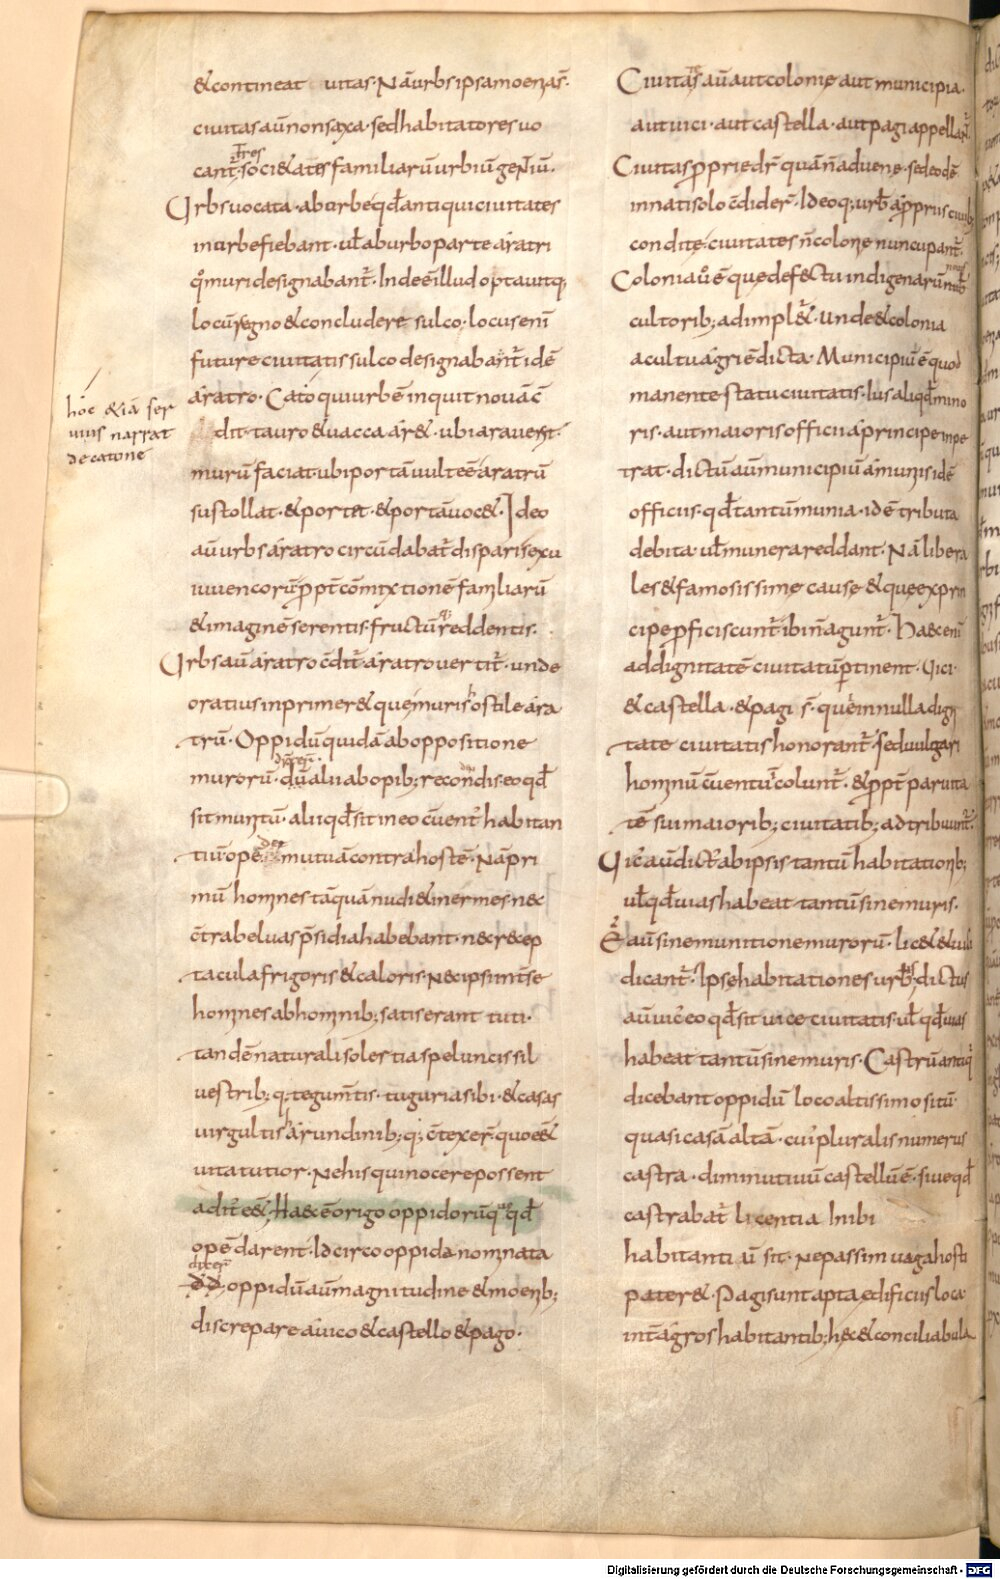 &contineat uitas. Nā urbs ipsa moenas̄.
ciuitas aū non saxa. sed habitatores uo
cant̄. tres soci&ates familiarū urbiū gentiū.
Urbs uocata. ab urbe qđ antiqui ciuitates
in urbe fiebant. uł ab urbo parte aratri
q̊ muri designabant̄. Inde ē illud optauitq;
locū regno & concludere sulco. locus enī
future ciuitatis sulco designabant̄ idē
aratro. Cato qui urbē inquit nouā c̄
dit. tauro & uacca ar&. ubi arauerit.
murū faciat. ubi portā uult eē aratrū
sustollat. & port&. & portā uoc&. Ideo
aū urbs aratro circūdabat̄ disparis exu
iuuencorū ꝓpt̄ cōmixtionē familiarū
& imaginē serentis. fructūq; reddentis.
Urbs aū aratro c̄dit̄ aratro uertit̄. unde
oratius inprimer& que muris ostile ara
trū. Oppidū quidā ab oppositione
murorū. dixer̄ alii ab opib; recondendis. eo qđ
sit munitū. alii qđ sit in eo c̄uent̄ habitan
tiū. opē de& mutuā contra hostē. Nā pri
mū homines tāquā nudi & inermes. nec
c̄tra beluas p̄sidia habebant. nec recep
tacula frigoris & caloris. Nec ipsi int̄ se
homines ab hominib; satis erant tuti.
tandē naturali solestia speluncis sil
uestrib; q; tegumtis. tuguria sibi. & casas
uirgultis & arundinib; q; c̄texer̄. quo ess&
uita tutior. Ne his qui nocere possent
adit̄ ess&. Haec ē origo oppidorū quę qđ
opē darent. Idcirco oppida nominata
dixer̄
oppidū aū magnitudine & moenib;
discrepare a uico & castello & pago.
hoc &iā ser
uius narrat
de catone
Ciuitates aū aut colonie aut municipia.
aut uici. aut castella. aut pagi appellant̄.
Ciuitas ꝓprie dr̄ quā n̄ aduene. sed eodē
innati solo c̄dider̄. Ideoq; urb̄ a ꝓpriis ciuib;
condite. ciuitates n̄ colonie nuncupant̄.
Colonia ů ē que defectu indigenarū nouis
cultorib; adimplet̄. Unde & colonia
a cultu agri ē dicta. Municipiū ē quod
manente statu ciuitatis. Ius aliqđ mino
ris. aut maioris officii a principe impe
trat. dictū aū municipiū a muniis idē
officiis. qđ tantū munia. idē tributa
debita uł munera reddant. Nā libera
les & famosissime cause & que ex prin
cipe ꝓficiscunt̄ ibi n̄ agunt̄. Haec enī
ad dignitatē ciuitatū ꝑtinent. Uici.
& castella. & pagi s̄. que in nulla digni
tate ciuitatis honorant̄. sed uulgari
hominū c̄uentu incolunt̄. & ꝓpt̄ paruita
tē sui maiorib; ciuitatib; adtribuunt̄.
Uic̄ aū dict̄ ab ipsis tantū habitationib;
uł qđ uias habeat tantū sine muris.
Ē aū sine munitione murorū. lic& & uici
dicant̄. Ipse habitationes urbis; dictus
aū uic̄ eo qđ sit uice ciuitatis. uł qđ uias
habeat tantū sine muris. Castrū antiq̊
dicebant oppidū loco altissimo sitū.
quasi casā altā. cui pluralis numerus
castra. diminutiuū castellū ē. siue qđ
castrabat̄ licentia Inibi
habitantiū sit. Ne passim uaga hosti
pater&. Pagi sunt apta ędificiis loca
int̄ agros habitantib; hęc & conciliabula
Digitalisierung gefördert durch die Deutsche Forschungsgemeinschaft - DFG